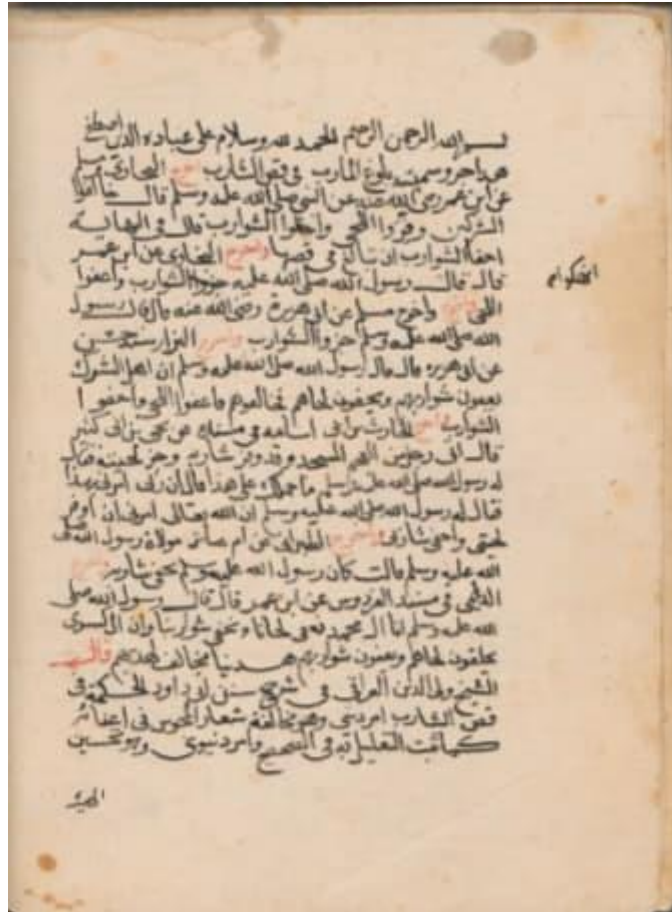 بسم الله الرحمن الرحيم الحمد لله وسلام على عباده الذين اصطفى
هذا جزو سميته بلوغ المارب في قص الشارب اخرج البخاري ومسلم
عن ابن عمر رضي الله عنه عن النبي صلى الله عليه وسلم قال خالفوا
المشركين وفروا اللحى واحفوا الشوارب قال في النهاية
احفا الشوارب ان تبالغ في قصها واخرج البخاري عن ابن عمر
قال قال رسول الله صلى الله عليه الشوارب واعفوا
اللحى واخرج مسلم عن ابي هريرة رضي الله عنه قال قال رسول
الله صلى الله عليه وسلم جزوا الشوارب واخرج البزار بسند حسن
عن ابي هريرة قال قال رسول الله صلى الله عليه وسلم ان اهل الشرك
يعفون شواربهم ويحفون لحاهم فخالفوهم فاعفوا اللحى واحفوا ا
الشوارب واخرج الحارث بن ابي اسامة في مسنده عن يحيى بن ابي كثير
قال اتى رجل من العجم المسجد وقد وفر شاربه وجز لحيته فقال
له رسول الله صلى الله عليه وسلم ما حملك على هذا قال ان ربي امرني بهذا
فقال له رسول الله صلى الله عليه وسلم ان الله تعالى امرني ان اوفر
لحيتي واحفي شاربي واخرج الطبراني عن ام مولاة رسول الله صلى
الله عليه وسلم قالت كان رسول الله صلى الله عليه وسلم يحفي شاربه واخرج
الديلمي في مسند الفردوس عن ابن عمر قال قال رسول الله صلى
الله عليه وسلم انا ال محمد نعفي لحانا ونحفي شواربنا وان ال كسرى
يحلقون لحاهم ويعفون شواربهم هدينا مخالف لهديهم قال
الشيخ ولي الدين العراقي في شرح سنن ابي داود الحكمة في
قص الشارب امر ديني وهو مخالفة شعار المجوس في اعفائه
كما ثبت التعليل به في الصحيح وامر دنيوي وهو تحسين